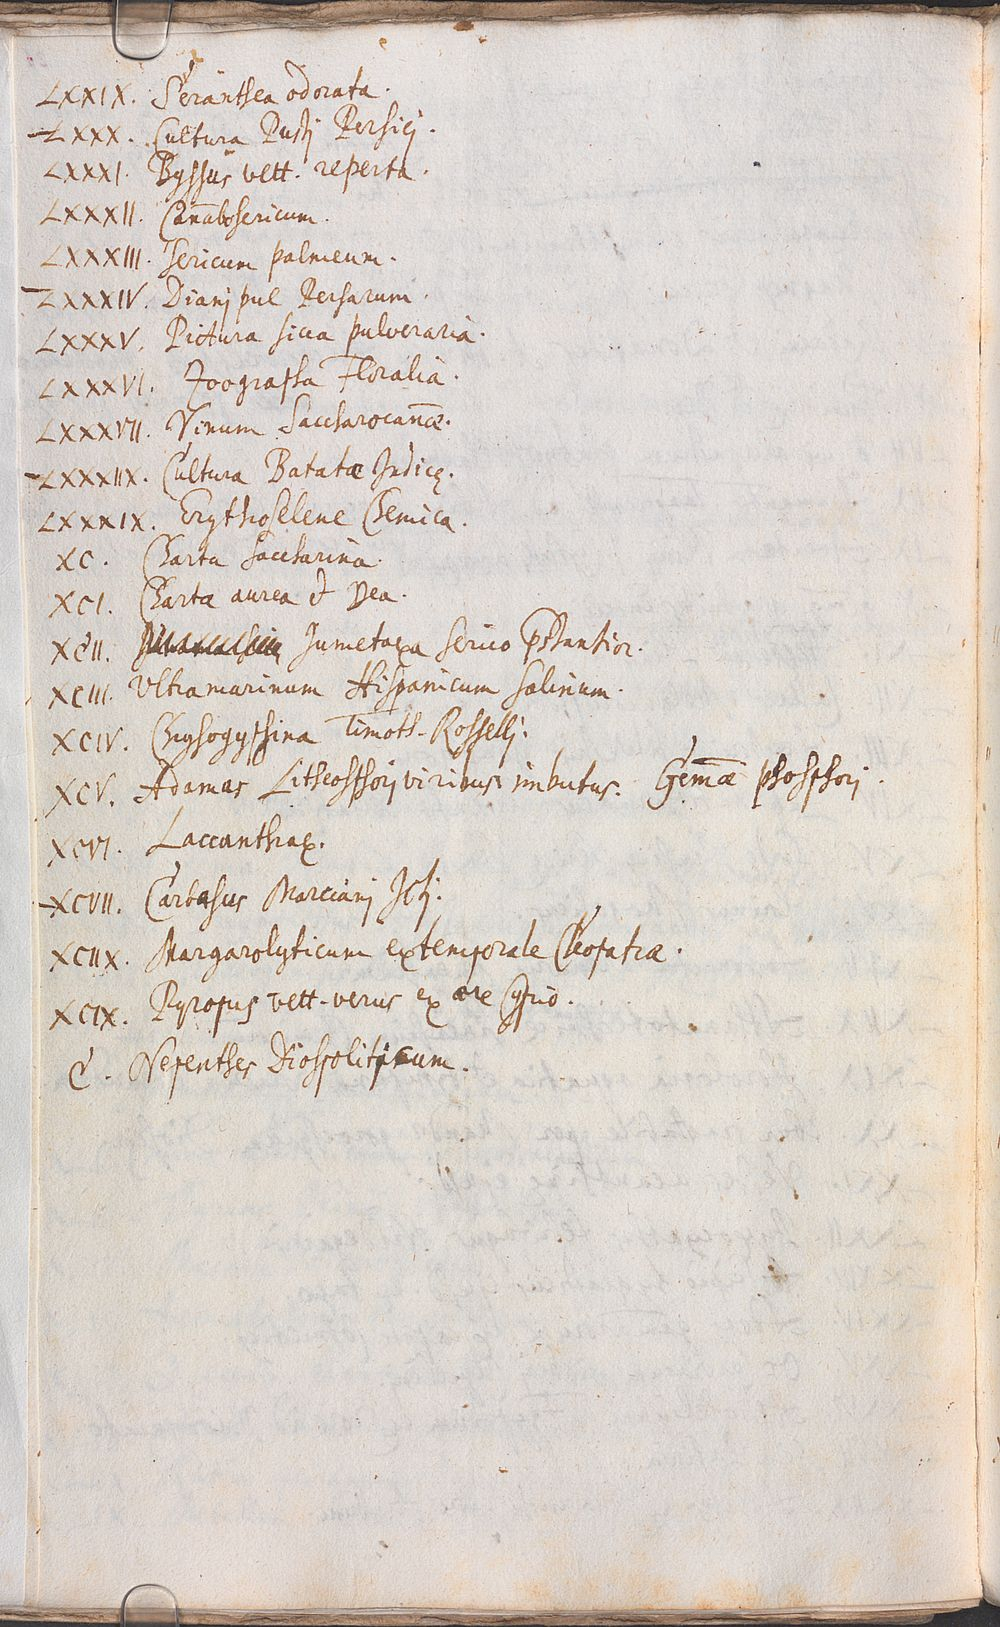 LXXIX. Seranthea odorata.
LXXX. Cultura Pusti Persici.
LXXXI. Byssus vett. reperta.
LXXXII. Can̄abosericum.
LXXXIII. Sericum palmeum.
LXXXIV. Dianj pul Persarum.
LXXXV. Pictura sicca pulveraria.
LXXXVI. Zoographa Floralia.
LXXXVII. Vinum Saccharocan̄æ.
LXXXIIX. Cultura Batatæ Indicę.
LXXXIX. Erythroselene Chemica.
XC. Charta saccharina.
XCI. Charta aurea &
XCII. Jumetaxa serico pstantior.
XCIII. Ultramarinum Hispanicum salinum.
XCIV. Chrysogyphina Timoth. Rosselli.
XCV. Adamas Litheosphorj viribus imbutus. Gem̄æ phosphorj.
XCVI. Laccanthrax.
XCVII. Carbasus Marcianj Jctj.
XCIIX. Margarolyticum extemporale Cleopatræ.
XCIX. Pyropus vett. verus ex ære Cyprio.
C. Nepenthes Diospoliticum.